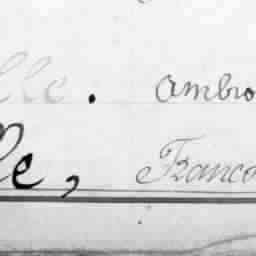 lle. Ambro
le, Franco